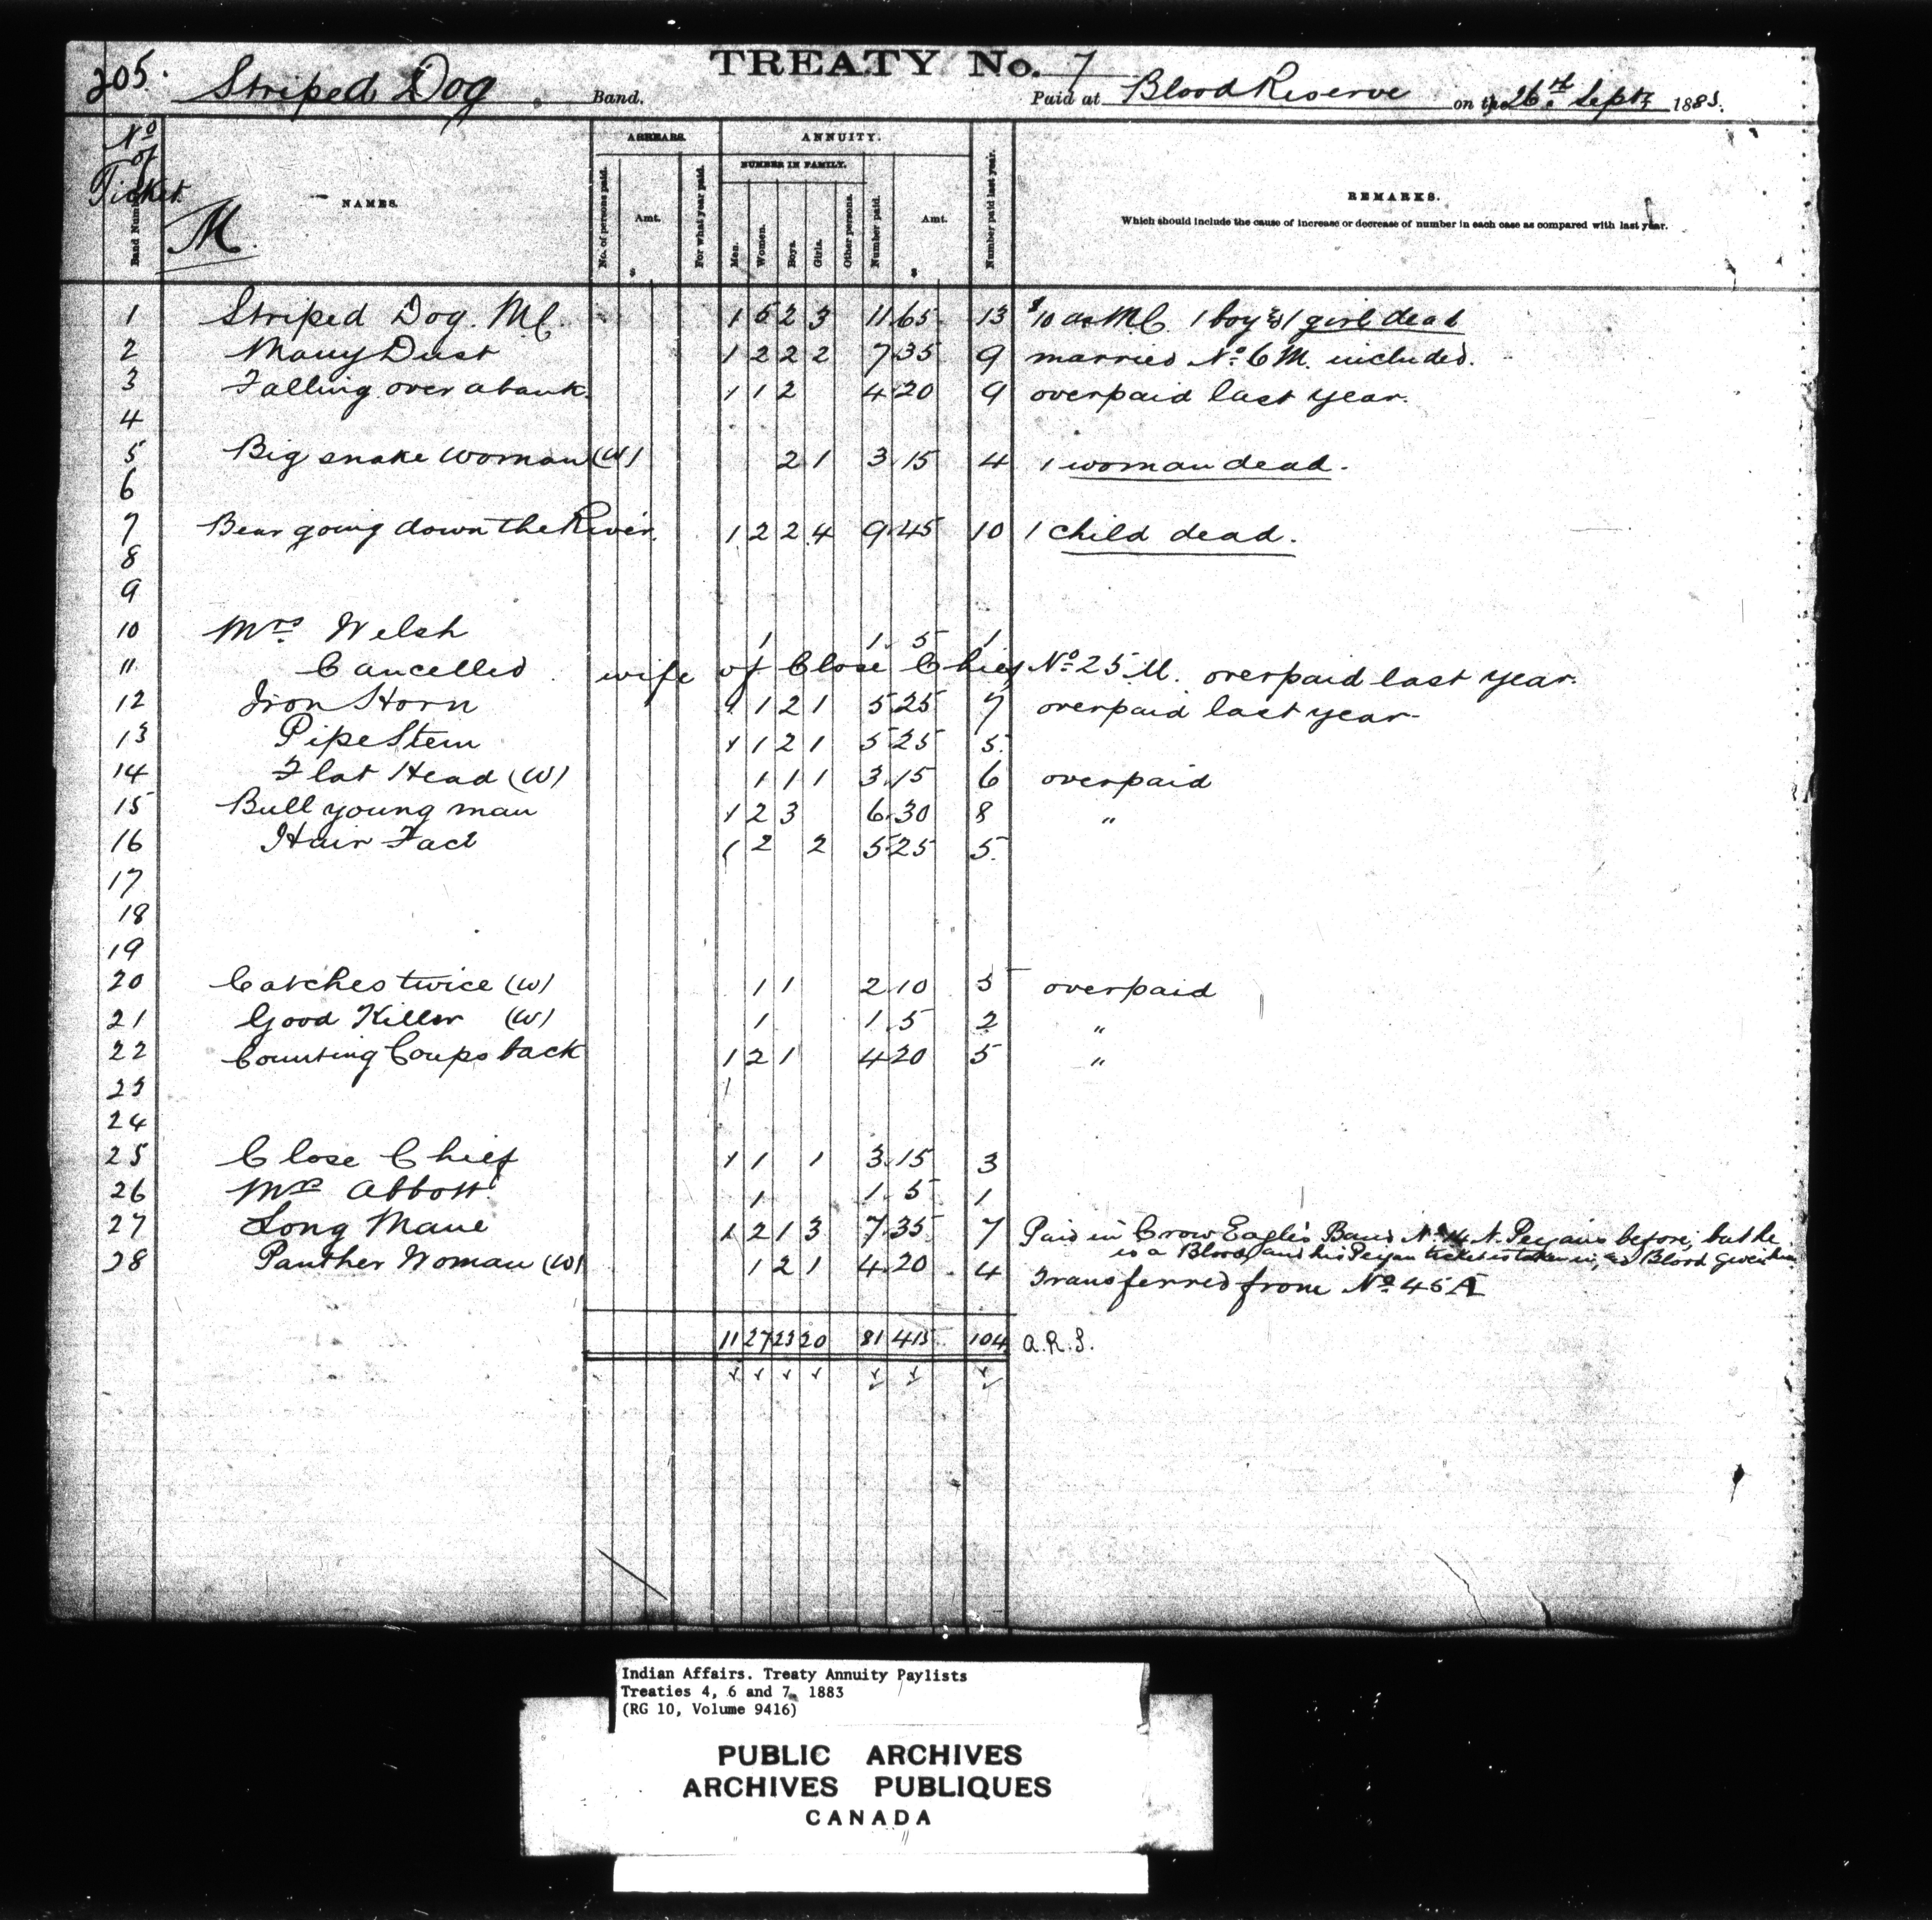 TREATY No. 7
205. Striped Dog Band. Paid at Blood Reserve on the 26th Septr 1883.
No of Ticket.
Band Number
M.
NAMES.
ARREARS.
No. of persons paid.
Amt.
$
For what year paid.
ANNUITY.
NUMBER IN FAMILY.
Men.
Women.
Boys.
Girls.
Other persons.
Number paid.
Amt.
$
Number paid last year.
REMARKS.
Which should include the cause of increase or decrease of number in each case as compared with last year.
1 Striped Dog. M.C. 1 5 2 3 11 65 13 $10 as M.C. 1 boy & 1 girl dead
2 Many Dust 1 2 2 2 7 35 9 married No 6 M. included.
3 Falling over a bank. 1 1 2 4 20 9 overpaid last year.
4
5 Big snake woman (W) 2 1 3 15 4 1 woman dead.
6
7 Bear going down the River. 1 2 2 4 9 45 10 1 child dead.
8
9
10 Mrs Welsh 1 1. 5 1
11 Cancelled. wife of Close Chief, No 25 M. overpaid last year.
12 Iron Horn 1 1 2 1 5 25 7 overpaid last year.
13 Pipe Stem 1 1 2 1 5 25 5.
14 Flat Head (W) 1 1 1 3. 15 6 overpaid
15 Bull young man 1 2 3 6. 30 8 "
16 Hair Face 1 2 2 5 25 5.
17
18
19
20 Catches twice (W) 1 1 2 10 3 overpaid
21 Good Killer (W) 1 1. 5 2 "
22 Counting Coups back 1 2 1 4 20 5 "
23
24
25 Close Chief 1 1 1 3. 15 3
26 Mrs Abbott 1 1. 5 1
27 Long Mane 1 2 1 3 7. 35 7 Paid in Crow Eagle's Band No 14 N. Peigans before; but he
is a Blood, and his Peigan ticket is taken in, & Blood given him.
28 Panther Woman (W) 1 2 1 4. 20 4 Transferred from No 45 A
11 27 23 20 81 415 104 A.R.S.
Indian Affairs. Treaty Annuity Paylists
Treaties 4, 6 and 7, 1883
(RG 10, Volume 9416)
PUBLIC ARCHIVES
ARCHIVES PUBLIQUES
CANADA